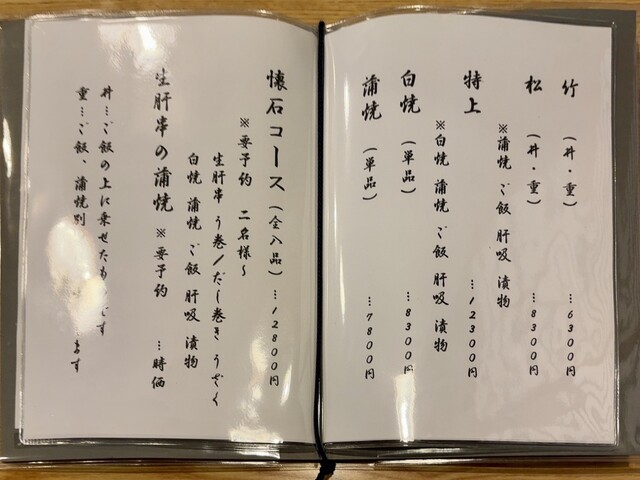 竹 (丼・重) …6300円
松 (丼・重) …8300円
※蒲焼 ご飯 肝吸 漬物
特上 …12300円
※白焼 蒲焼 ご飯 肝吸 漬物
白焼 (単品) …8300円
蒲焼 (単品) …7800円
懐石コース(全八品) …12800円
※要予約 二名様〜
生肝串 う巻/だし巻き うざく
白焼 蒲焼 ご飯 肝吸 漬物
生肝串の蒲焼 ※要予約 …時価
丼…ご飯の上に乗せたも
重…ご飯、蒲焼別